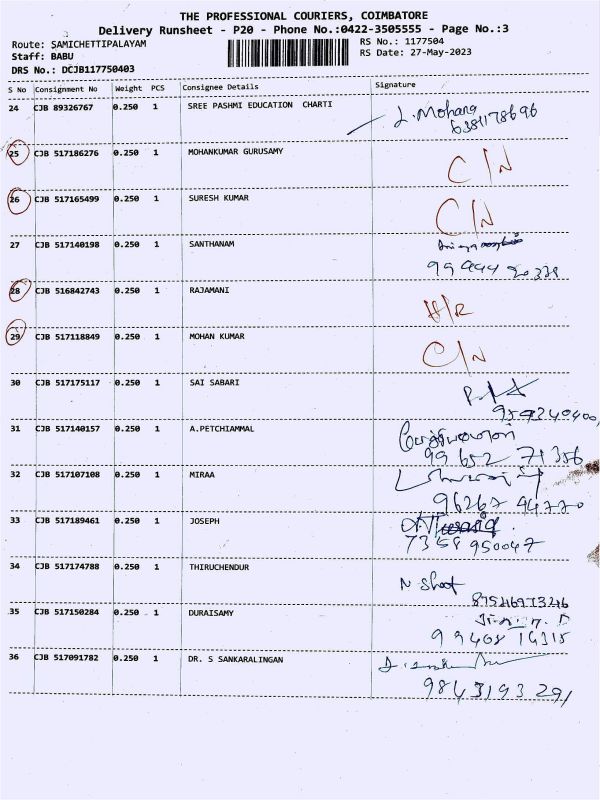 THE PROFESSIONAL COURIERS, COIMBATORE
Delivery Runsheet - P20 - Phone No.:0422-3505555 - Page No.:3
Route: SAMICHETTIPALAYAM RS No.: 1177504
Staff: BABU RS Date: 27-May-2023
DRS No.: DCJB117750403
S No Consignment No Weight PCS Consignee Details Signature
24 CJB 89326767 0.250 1 SREE PASHMI EDUCATION CHARTI L. Mohana
6381178696
25 CJB 517186276 0.250 1 MOHANKUMAR GURUSAMY C/N
26 CJB 517165499 0.250 1 SURESH KUMAR C/N
27 CJB 517140198 0.250 1 SANTHANAM
28 CJB 516842743 0.250 1 RAJAMANI H/R
29 CJB 517118849 0.250 1 MOHAN KUMAR C/N
30 CJB 517175117 0.250 1 SAI SABARI
31 CJB 517140157 0.250 1 A.PETCHIAMMAL
99652 71356
32 CJB 517107108 0.250 1 MIRAA
96267 44770
33 CJB 517189461 0.250 1 JOSEPH
7358 950047
34 CJB 517174788 0.250 1 THIRUCHENDUR
35 CJB 517150284 0.250 1 DURAISAMY
99408 14315
36 CJB 517091782 0.250 1 DR. S SANKARALINGAN
9843193291